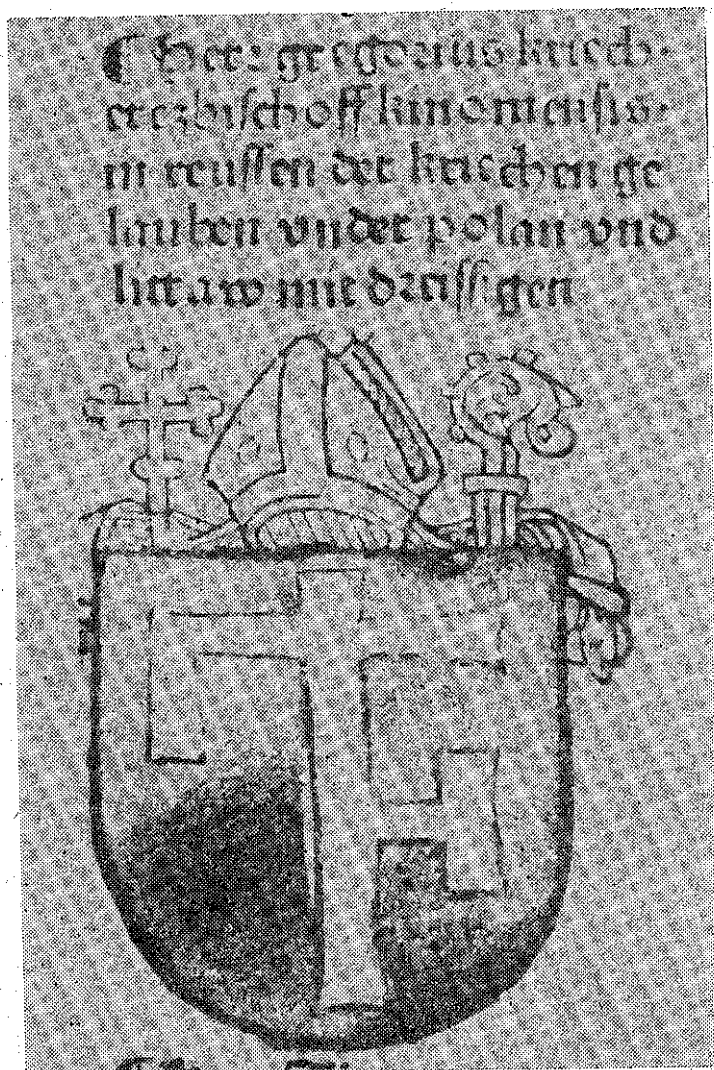 ¶ Herr gregorius kriech
erczbischoff kinonensis
in reussen der kriechen ge
lauben vnder polan vnd
littaw mit dreissigen